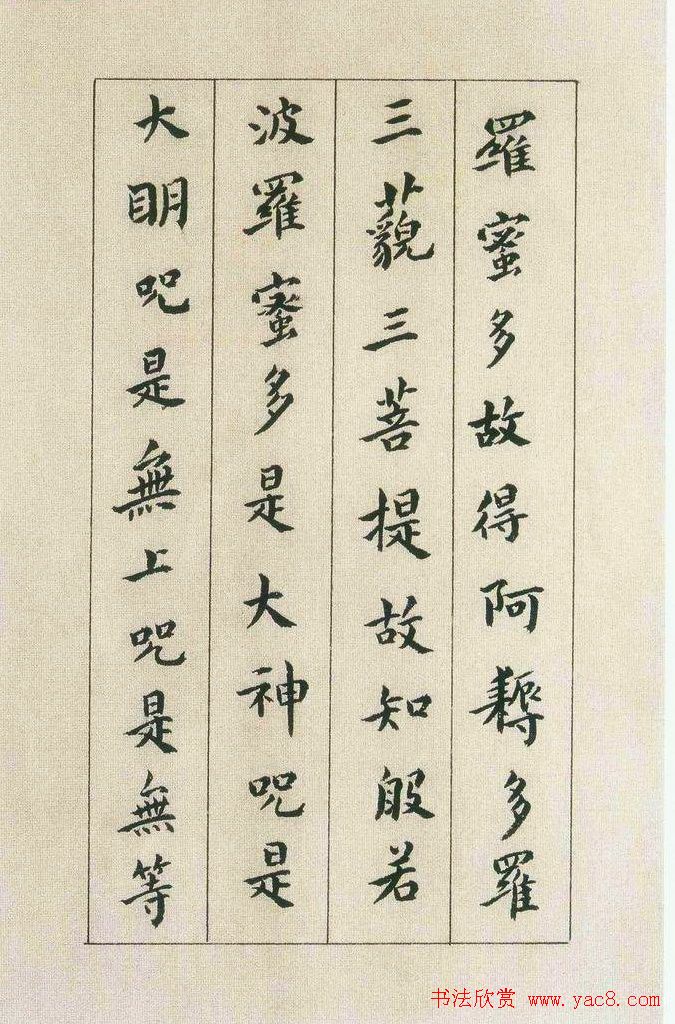 羅蜜多故得阿耨多羅
三藐三菩提故知般若
波羅蜜多是大神咒是
大明咒是無上咒是無等
书法欣赏 www.yac8.com